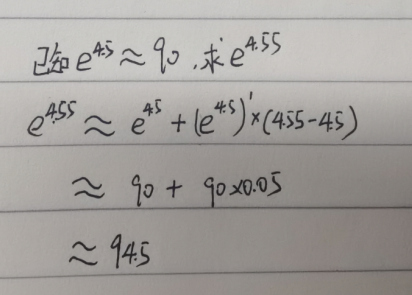 已知 e^4.5 ≈ 90 , 求 e^4.55
e^4.55 ≈ e^4.5 + (e^4.5)' × (4.55-4.5)
≈ 90 + 90×0.05
≈ 94.5